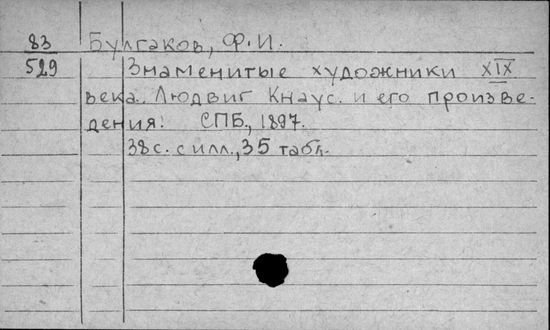 83 Булгаков, Ф.И.
529 Знаменитые художники XIX
века. Людвиг Кнаус. и его произве-
дения. СПБ., 1897.
38с. с илл., 35 табл.